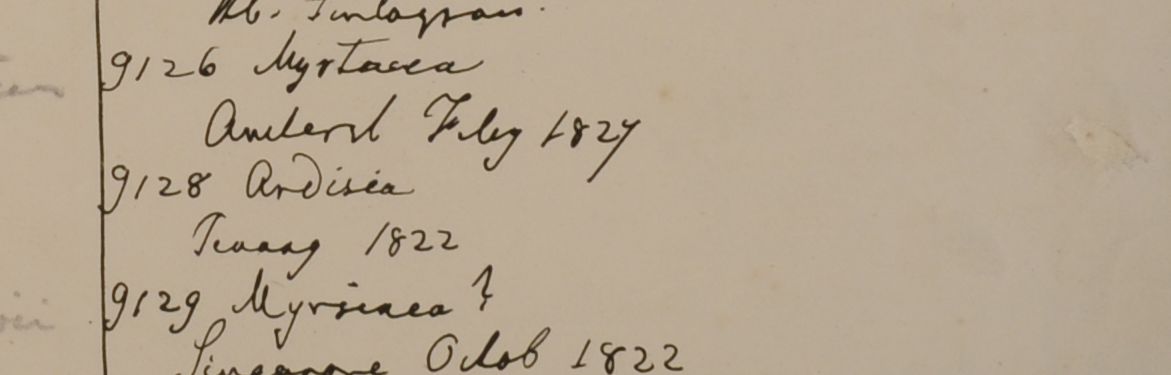 Hb. Finlayson.
9126 Myrtacea
Amherst Feby 1827
9128 Ardisia
Penang 1822
9129 Myrsinea ?
Singapore Octob 1822